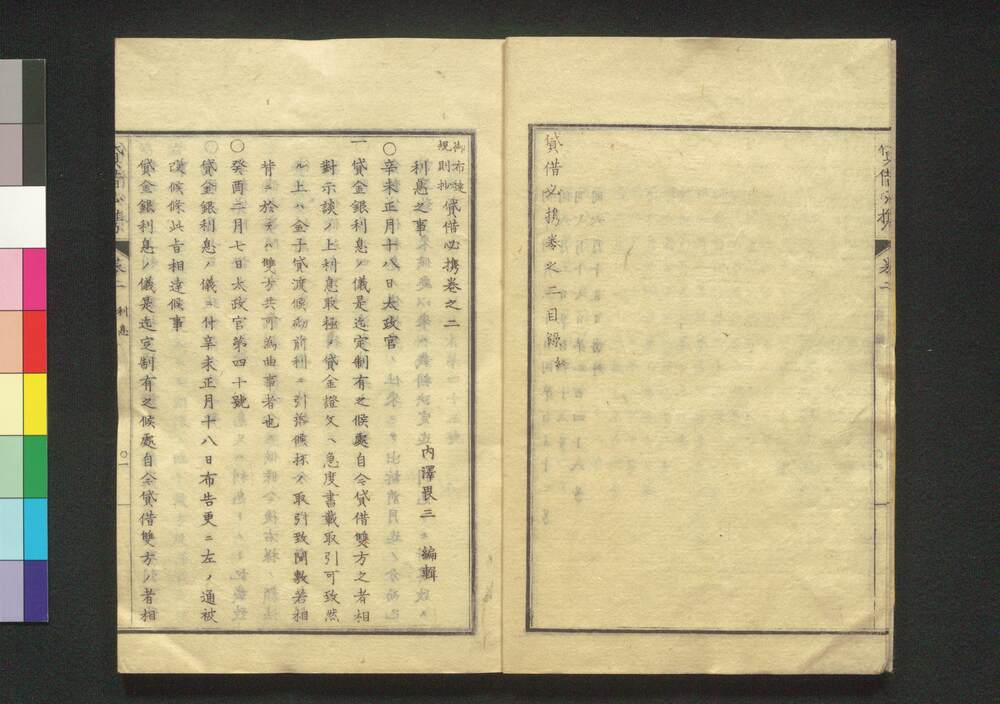 貸借必携
巻二
貸借必携巻之二目録終
御布達
規則抄
貸借必携巻之二
内澤畏三 編輯
利息之事
〇辛未正月十八日太政官
一貸金銀利息ノ儀是迄定制有之候處自今貸借雙方之者相
對示談ノ上利息取極メ貸金證文ヘ急度書載取引可致然
ル上ハ金子貸渡候砌前利ニ引落候抔ノ取引致間敷若相
背ニ於テハ雙方共可為曲事者也
〇癸酉二月七日太政官第四十號
貸金銀利息ノ儀ニ付辛未正月十八日布告更ニ左ノ通被
改候條此旨相達候事
貸金銀利息ノ儀是迄定制有之候處自今貸借雙方ノ者相
貸借必携
巻二
利息
〇一